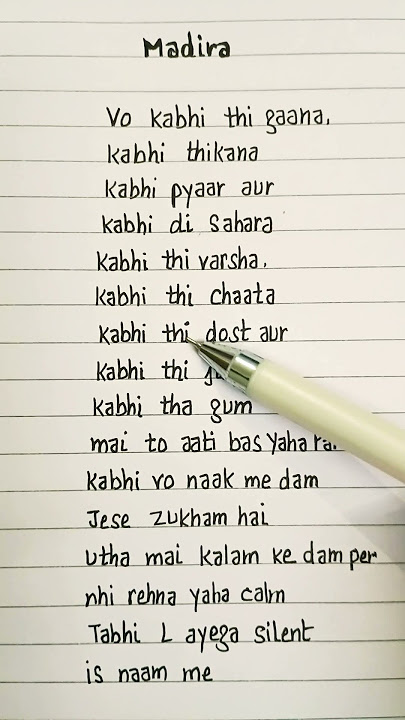 Madira
Vo kabhi thi gaana,
kabhi thikana
kabhi pyaar aur
kabhi di Sahara
kabhi thi varsha.
kabhi thi chaata
kabhi thi dost aur
kabhi thi
kabhi tha gum
mai to aati bas yaha
kabhi vo naak me dam
Jese zukham hai
utha mai kalam ke dam per
nhi rehna yaha calm
Tabhi L ayega silent
is naam me